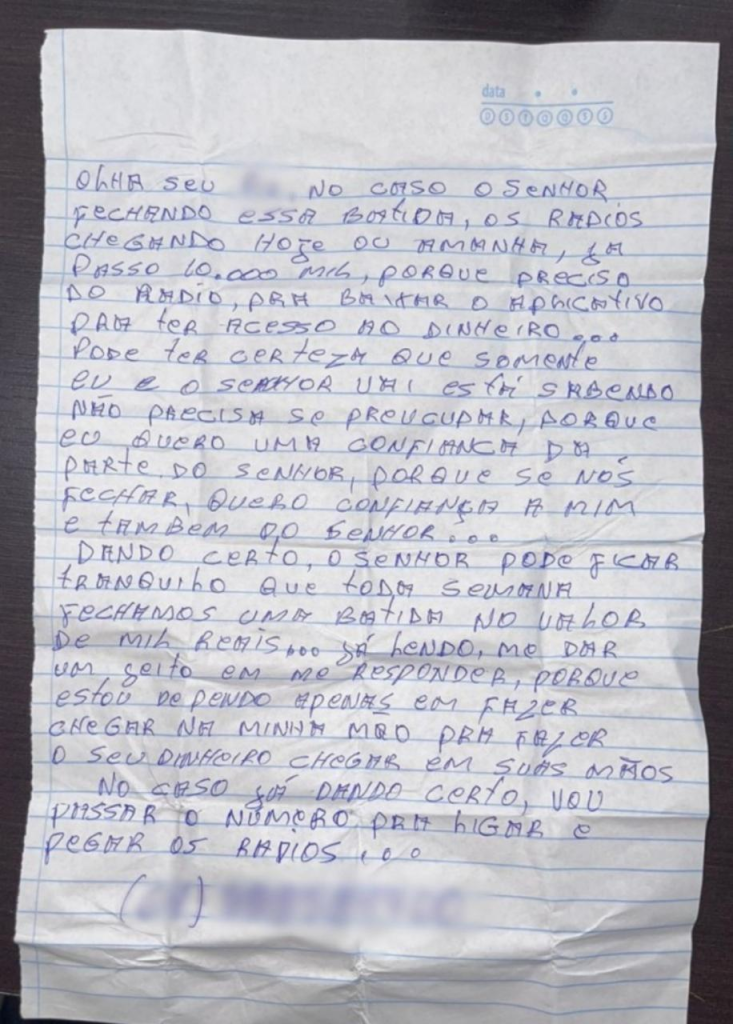 data
D S T Q Q S S
OLHA SEU NO CASO O SENHOR
FECHANDO ESSA BATIDA, OS RADIOS
CHEGANDO HOJE OU AMANHA, JA
PASSO 10.000 MIL, PORQUE PRECISO
DO RADIO, PRA BAIXAR O APLICATIVO
PRA TER ACESSO AO DINHEIRO...
PODE TER CERTEZA QUE SOMENTE
EU E O SENHOR VAI ESTÁ SABENDO
NÃO PRECISA SE PREUCUPAR, PORQUE
EU QUERO UMA CONFIANÇA DA
PARTE DO SENHOR, PORQUE SE NÓS
FECHAR, QUERO CONFIANÇA A MIM
E TAMBEM DO SENHOR...
DANDO CERTO, O SENHOR PODE FICAR
TRANQUILO QUE TODA SEMANA
FECHAMOS UMA BATIDA NO VALOR
DE MIL REAIS... JÁ LENDO, ME DAR
UM JEITO EM ME RESPONDER, PORQUE
ESTOU DEPENDO APENAS EM FAZER
CHEGAR NA MINHA MÃO PRA FAZER
O SEU DINHEIRO CHEGAR EM SUAS MÃOS
NO CASO JÁ DANDO CERTO, VOU
PASSAR O NÚMERO PRA LIGAR E
PEGAR OS RADIOS...